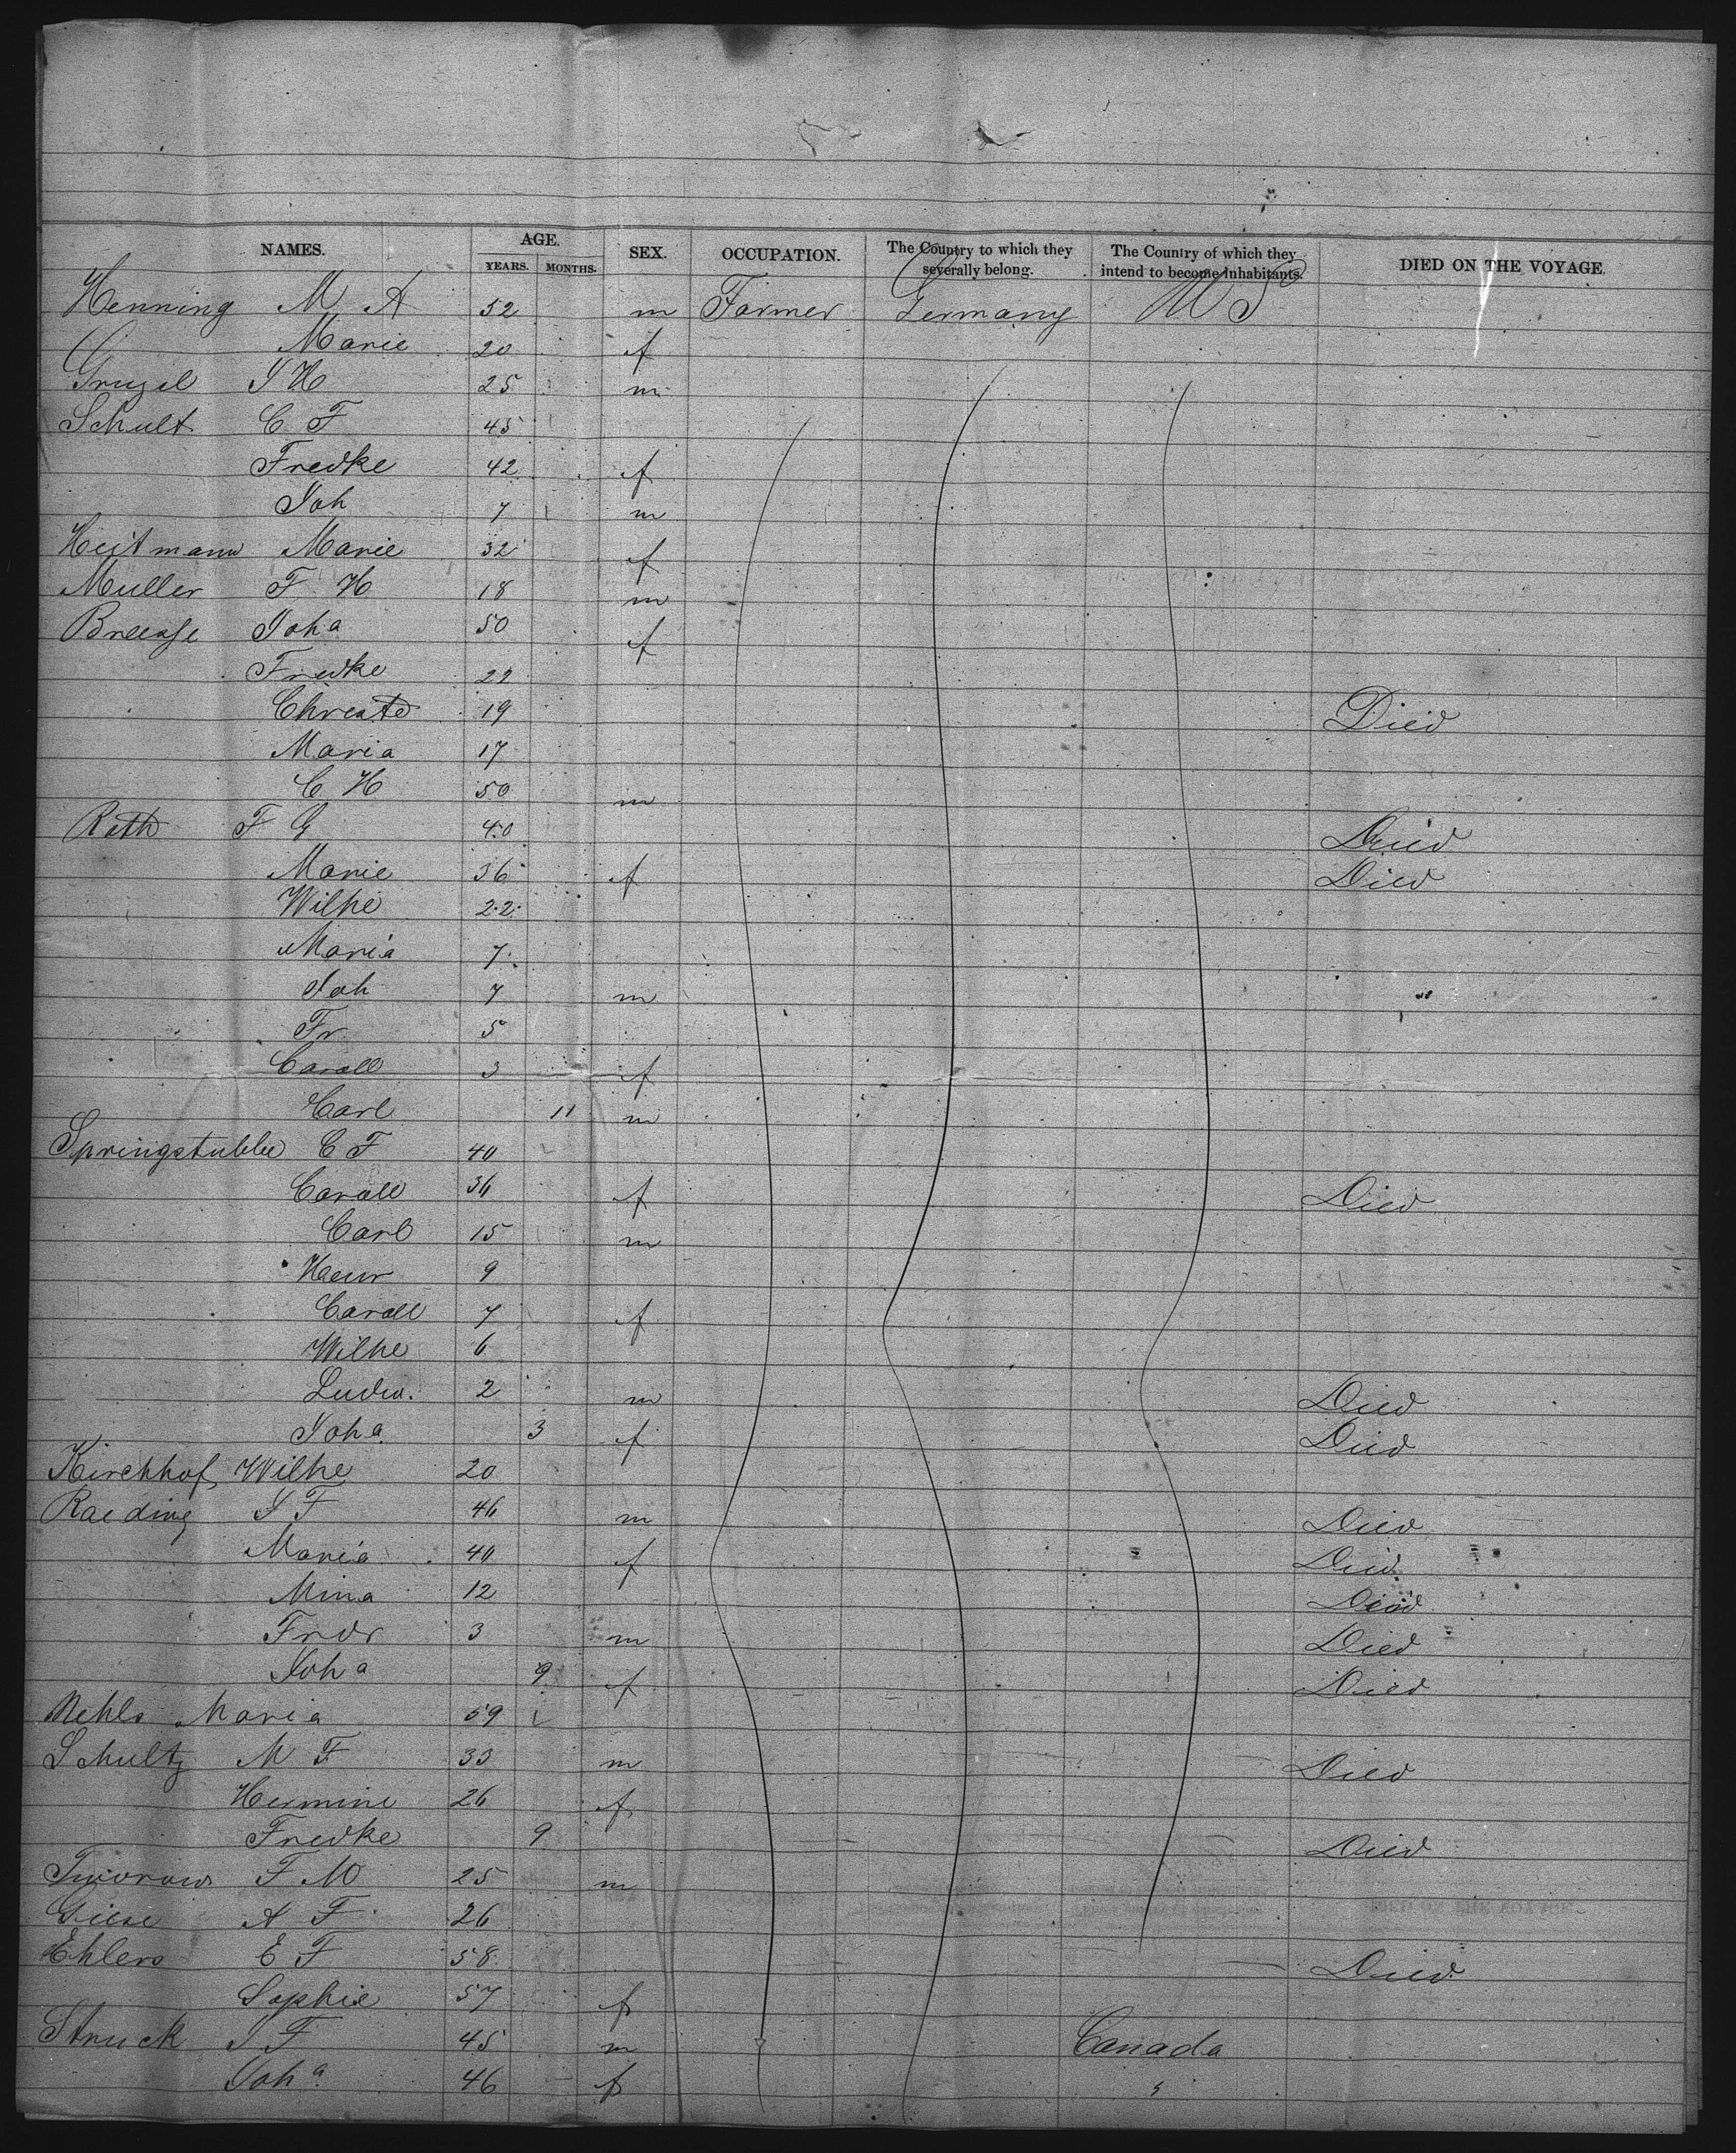 NAMES. AGE. SEX. OCCUPATION. The Country to which they severally belong. The Country of which they intend to become inhabitants. DIED ON THE VOYAGE.
YEARS. MONTHS.
Henning M A 52 m Farmer Germany U S
Marie 20 f
J H 25 m
Schult C F 45
Fredke 42 f
Joh 7 m
Heitmann Marie 32 f
Muller F H 18 m
Joha 50 f
Fredke 22
19 Died
Maria 17
C H 50 m
Rath F G 40 Died
Marie 36 f Died
Wilhe 22
Maria 7
Joh 7 m
Fr 5
Caroll 3 f
Carl 11 m
Springstubbe C F 40
Caroll 36 f Died
Carl 15 m
9
Caroll 7 f
Wilhe 6
Ludw. 2 m Died
Joha 3 f Died
Kirchhof Wilhe 20
Raeding J F 46 m Died
Maria 40 f Died
Mina 12 Died
Fredr 3 m Died
Joha 9 f Died
Nehls Maria 59
Schultz M F 33 m Died
Hermine 26 f
Fredke 9 Died
F M 25 m
Giese A F 26
Ehlers E F 58 Died
Sophie 57 f
Struck J F 45 m Canada
Joha 46 f "